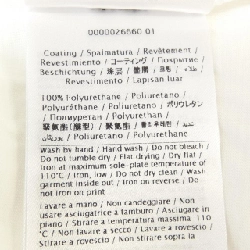 0000026560 01
Coating / Spalmatura / Revêtement /
Revestimiento / コーティング /
Beschichtung /
Revestimento / Lapisan luar
100% Polyurethane / Poliuretano /
Polyuréthane / Poliuretano / ポリウレタン
/ Полиуретан / Polyurethan /
聚氨酯(膜型) / 聚氨酯 /
Poliuretano / Polyurethane
Wash by hand / Hand wash / Do not bleach /
Do not tumble dry / Flat drying / Dry flat /
Iron at maximum sole-plate temperature of
110°C / Iron, low / Do not dry clean / Wash
garment inside out / Iron on reverse / Do
not iron on print
Lavare a mano / Non candeggiare / Non
usare asciugatrice a tamburo / Asciugare in
piano / Stirare a temperatura massima 110
°C / Non lavare a secco / Lavare a rovescio /
Stirare a rovescio / Non stirare sopra la